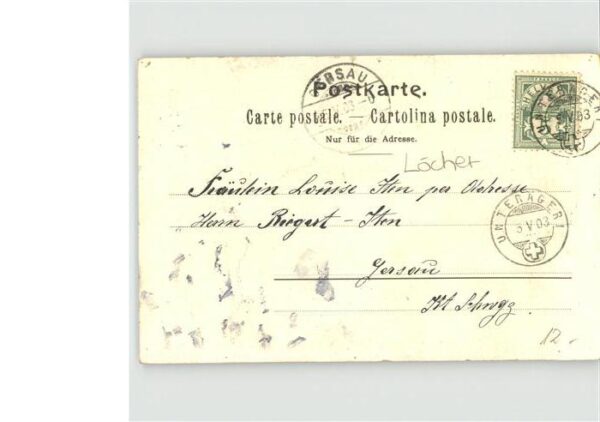 GERSAU
Postkarte.
Carte postale. — Cartolina postale.
Nur für die Adresse.
HELVETIA
5
UNTERÄGERI
Löcher
Fräulein Louise Iten per Adresse
Herrn Riegert-Iten
UNTERÄGERI
3 V 03
Gersau
Kt Schwyz
12.-